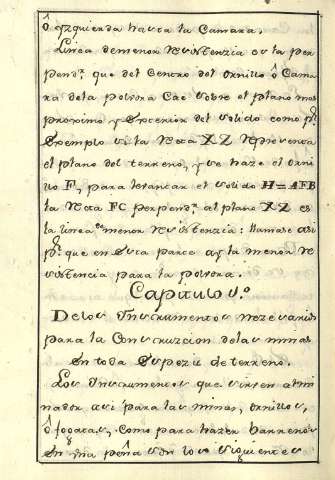 ô yzquierda hasta la Camara.
Linea de menor resistenzia es la per
pend.r que del Centro del ornillo ô Cama
ra dela polvora Cae sobre el plano mas
proximo y exterior del solido como p.r
Exemplo si la recta XZ representa
el plano del terreno, y se haze el orni
llo F, para levantar el solido H=AFB
la recta FC perpend.r al plano XZ es
la linea de menor resistenzia: llamase asi
p.r que en esta parte ay la menor re
sistencia para la polvora.
Capitulo 5.o
Delos Instrumentos nezesarios
para la Construzcion delas minas
en toda Superzie de terreno.
Los Instrumentos que sirven al mi
nador asi para las minas, ornillos,
ô fogatas, como para hazer barrenos
en una peña son los siguientes